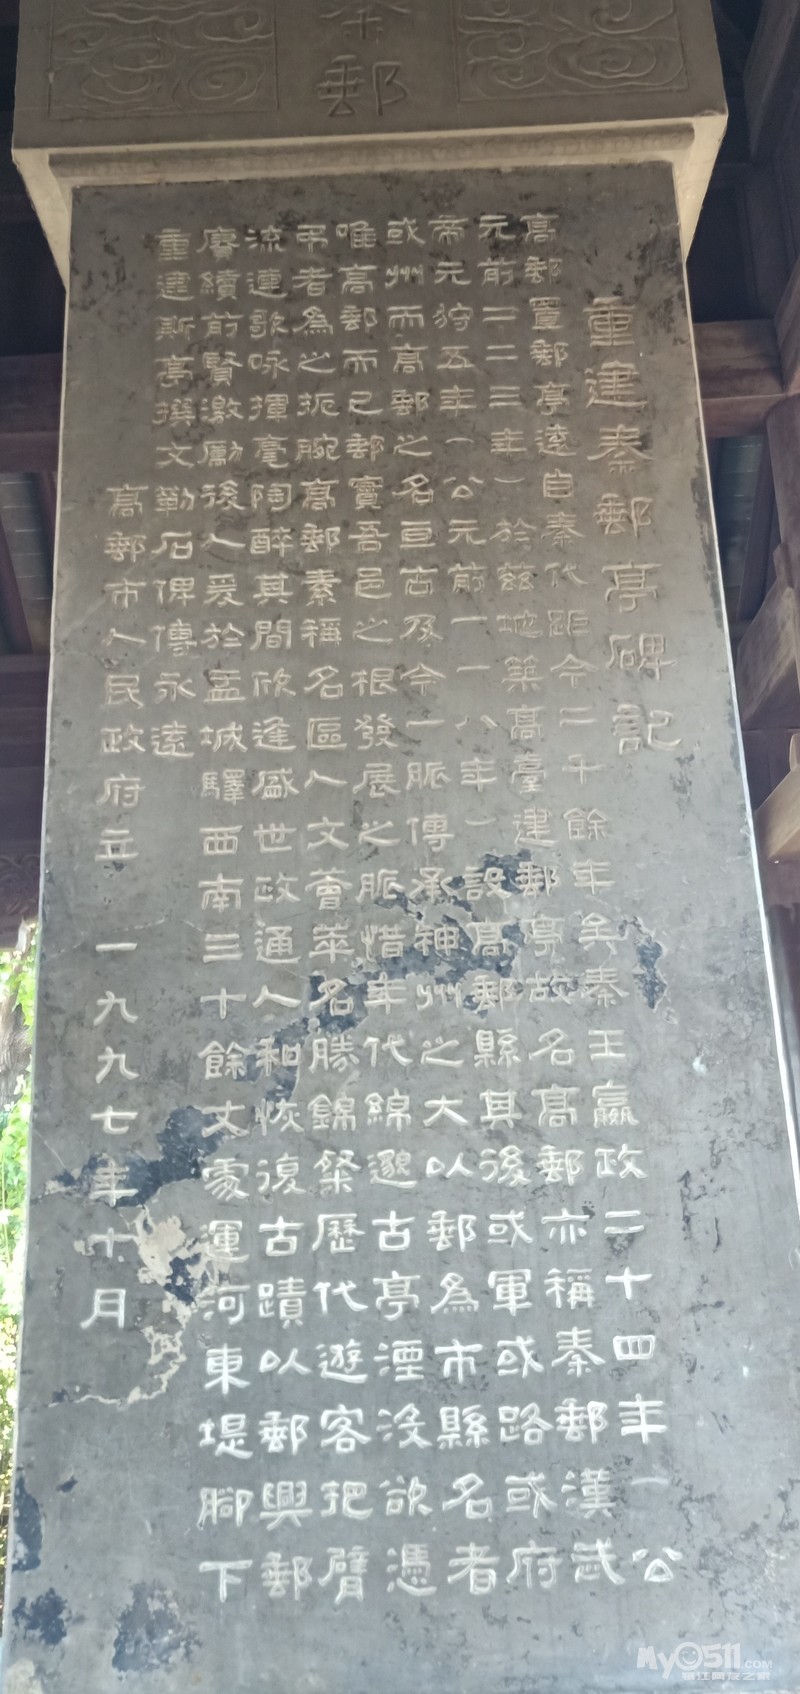 秦郵
重建秦郵亭碑記
高郵置郵亭遠自秦代距今二千餘年矣秦王嬴政二十四年一公
元前二二三年一於茲地築高臺建郵亭故名高郵亦稱秦郵漢武
帝元狩五年一公元前一一八年一設高郵縣其後或軍或路或府
或州而高郵之名亘古及今一脈傳承神州之大以郵為市縣名者
唯高郵而已郵實吾邑之根發展之脈惜年代綿邈古亭湮沒欲憑
弔者為之扼腕高郵素稱名區人文薈萃名勝錦粲歷代遊客把臂
流連歌咏揮毫陶醉其間欣逢盛世政通人和恢復古蹟以郵興郵
賡續前賢激勵後人爰於盂城驛西南三十餘丈處運河東堤腳下
重建斯亭撰文勒石俾傳永遠
高郵市人民政府立 一九九七年十月
My0511.COM
镇江网友之家